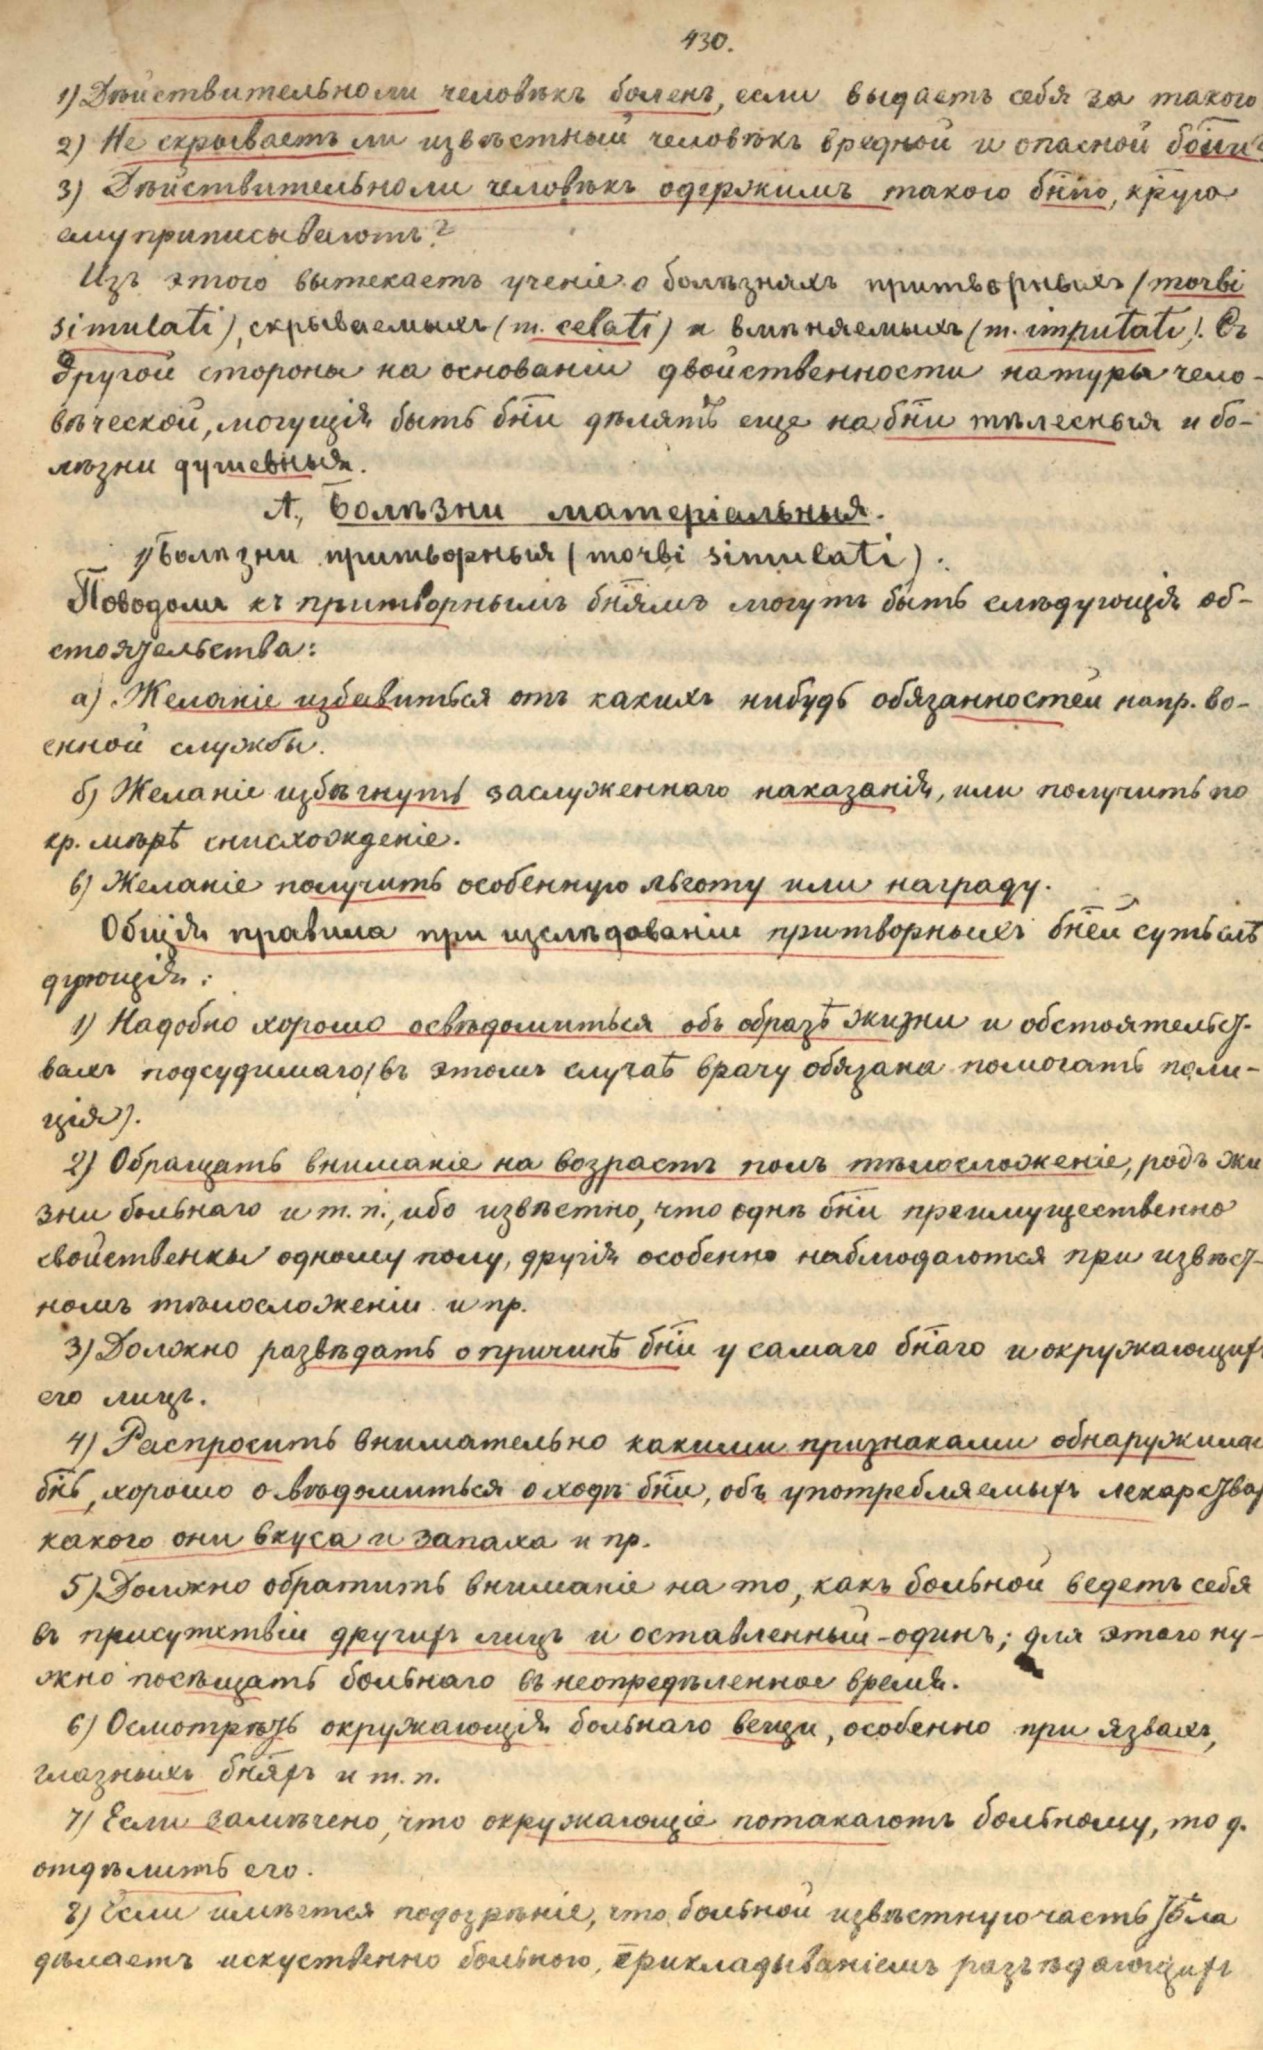 430.
1) Дѣйствительноли человѣкъ боленъ, если выдаетъ себя за такого
2) Не скрываетъ ли извѣстный человѣкъ вредной и опасной бо̅ни?
3) Дѣйствительноли человѣкъ одержимъ такого бн̅ію,
ему приписываютъ?
Изъ этого вытекаетъ ученіе о болѣзняхъ притворныхъ (morbi
simulati), скрываемыхъ (m. celati) и вмѣняемыхъ (m. imputati). Съ
другой стороны на основаніи двойственности натуры чело-
вѣческой, могущія быть бн̅и дѣлятъ еще на бн̅и тѣлесныя и бо-
лѣзни душевныя.
А., Болѣзни матеріальныя.
1) Болѣзни притворныя (morbi simulati).
Поводомъ къ притворнымъ бн̅ямъ могутъ быть слѣдующія об-
стоятельства:
а) Желаніе избавиться отъ какихъ нибудь обязанностей напр. во-
енной службы.
б) Желаніе избѣгнуть заслуженнаго наказанія, или получить по
кр. мѣрѣ снисхожденіе.
в) Желаніе получить особенную льготу или награду.
Общія правила при изслѣдованіи притворныхъ бн̅ей суть слѣ
дующія:
1) Надобно хорошо освѣдомиться объ образѣ жизни и обстоятельст-
вахъ подсудимаго (въ этомъ случаѣ врачу обязана помогать поли-
ція).
2) Обращать вниманіе на возрастъ полъ тѣлосложеніе, родъ жи
зни больнаго и т. п., ибо извѣстно, что однѣ бн̅и преимущественно
свойственны одному полу, другія особенно наблюдаются при извѣст-
номъ тѣлосложеніи и пр.
3) Должно развѣдать о причинѣ бн̅и у самаго бн̅аго и окружающихъ
его лицъ.
4) Распросить внимательно какими признаками обнаружилас
бн̅ь, хорошо овѣдомиться о ходѣ бн̅и, объ употребляемыхъ лекарствах
какого они вкуса и запаха и пр.
5) Должно обратить вниманіе на то, какъ больной ведетъ себя
въ присутствіи другихъ лицъ и оставленный-одинъ; для этого ну-
жно посѣщать больнаго въ неопредѣленное время.
6) Осмотрѣть окружающія больнаго вещи, особенно при язвахъ,
глазныхъ бн̅яхъ и т. п.
7) Если замѣчено, что окружающіе потакаютъ больному, то д.
отдѣлить его.
8) Если имѣется подозрѣніе, что больной извѣстную часть тѣла
дѣлаетъ искуственно больною, прикладываніемъ разъѣдающихъ